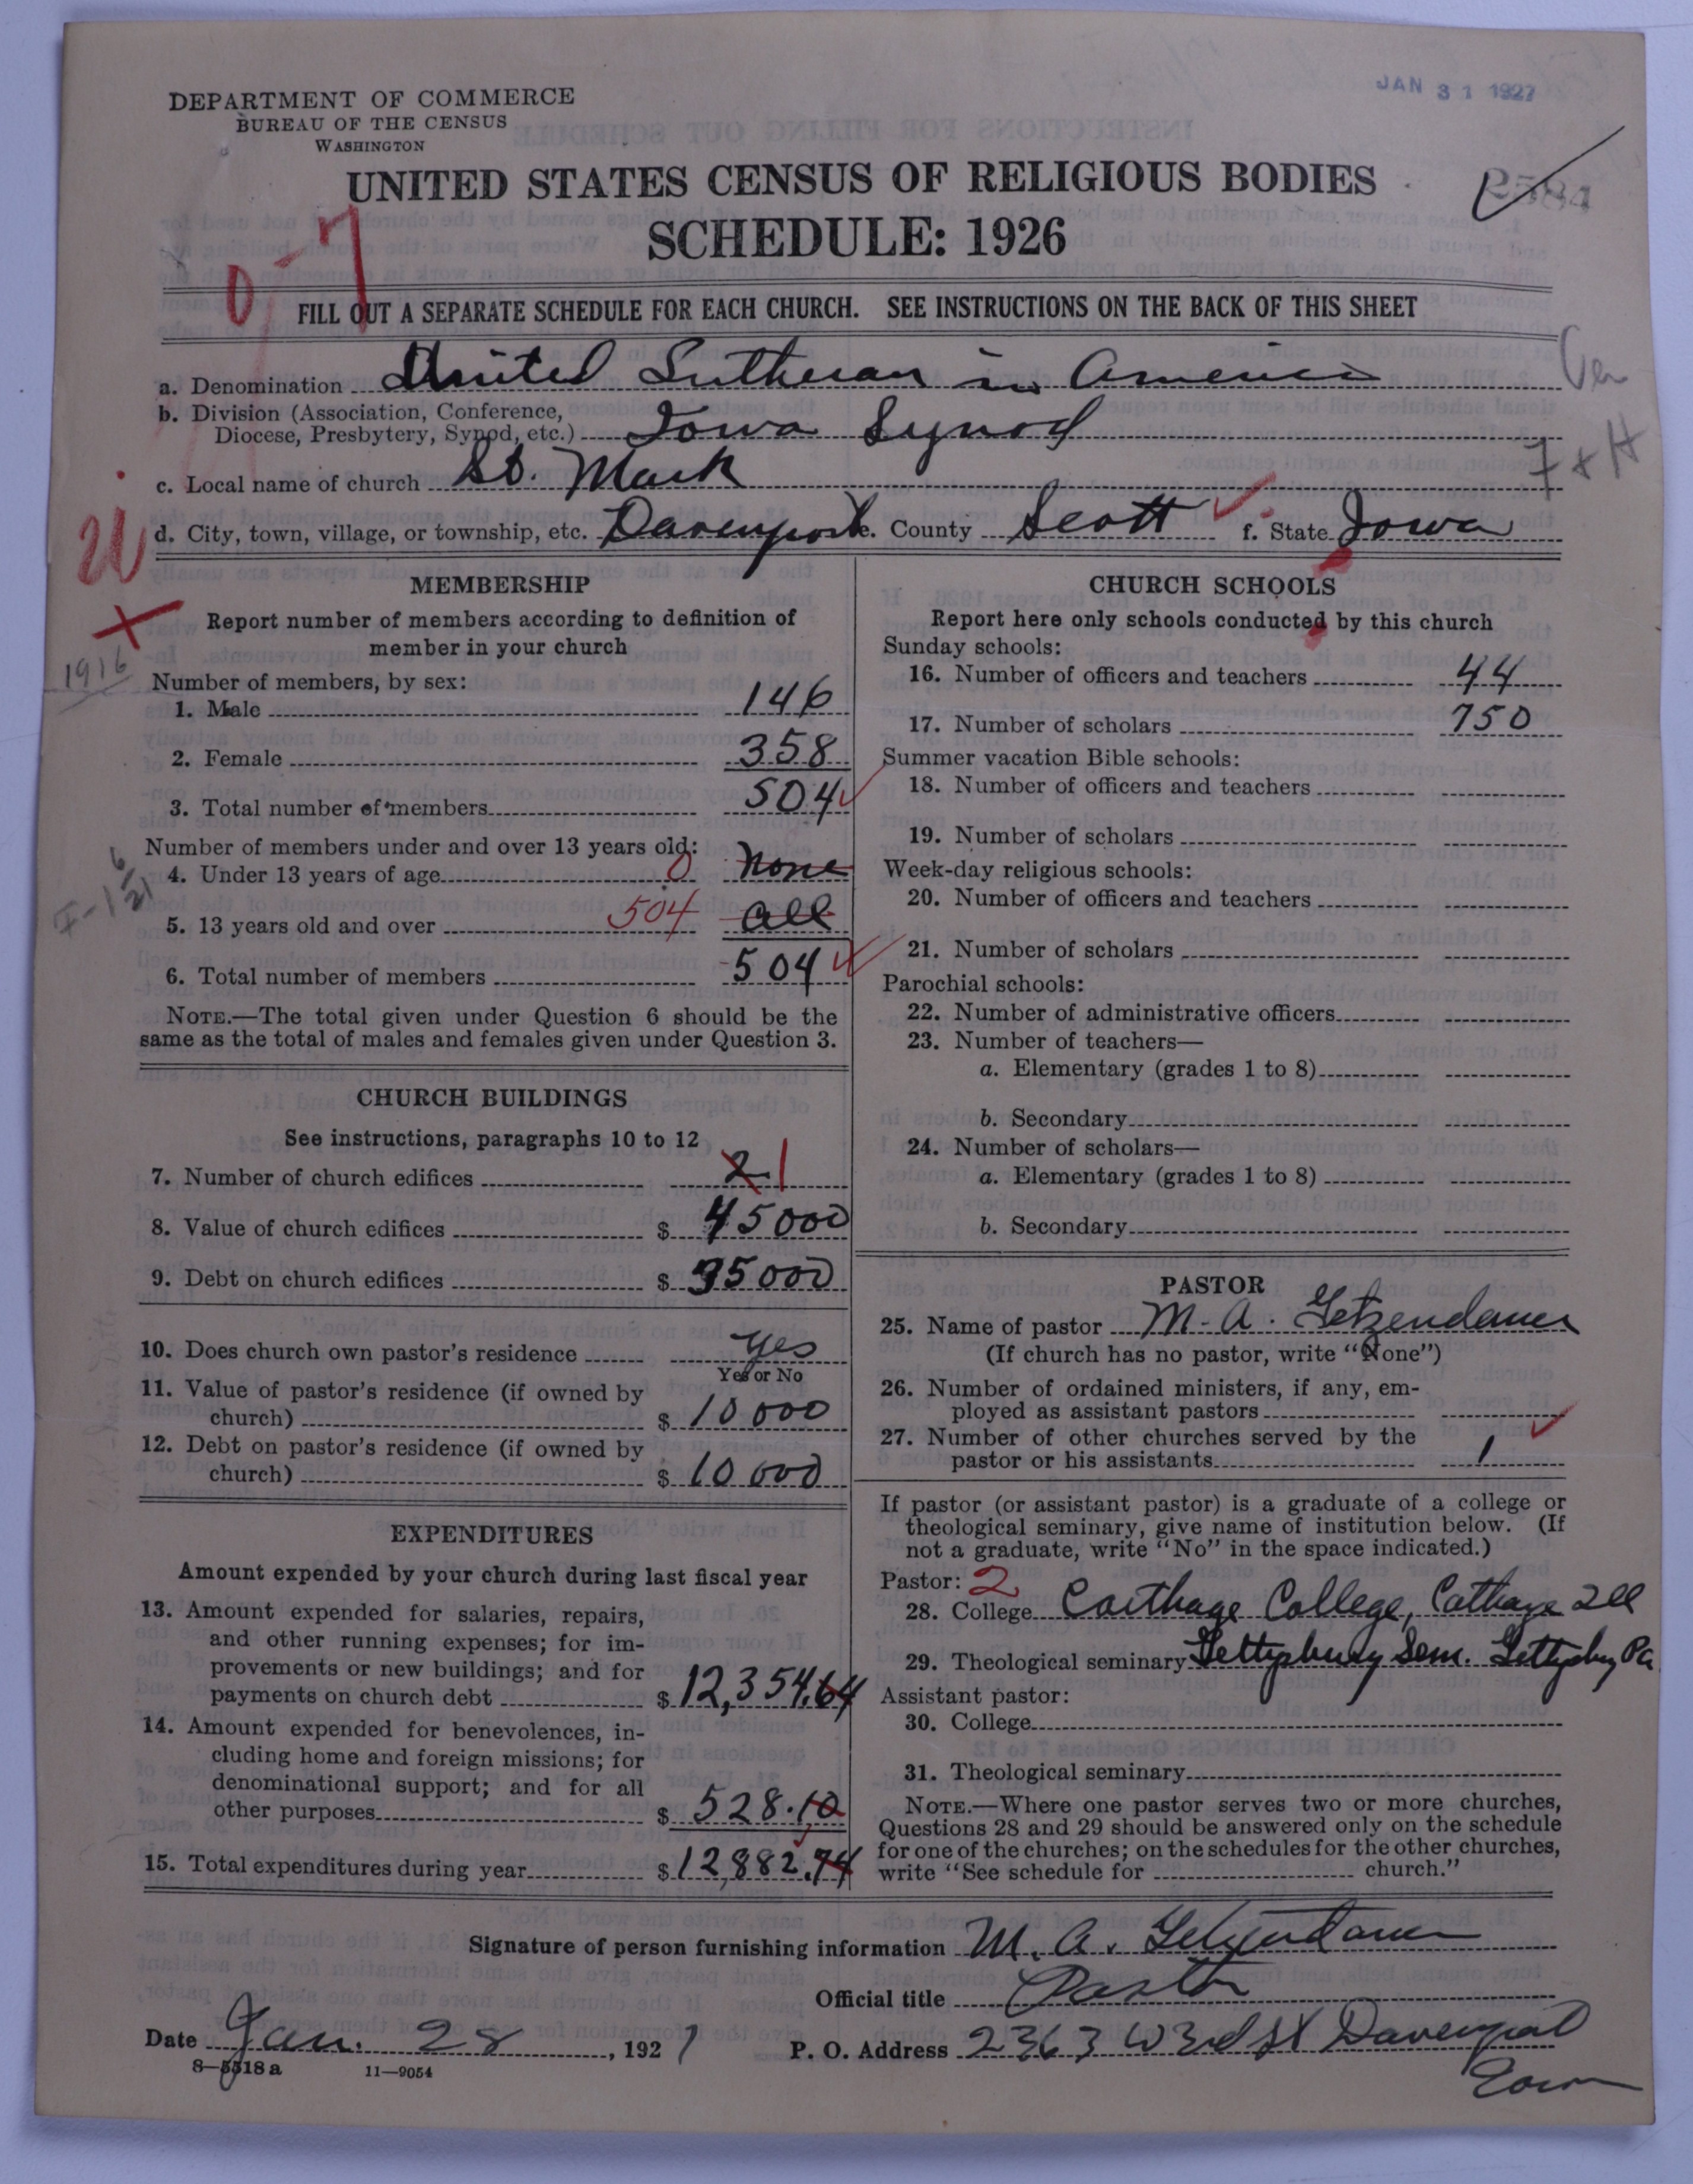 JAN 31 1927
DEPARTMENT OF COMMERCE
BUREAU OF THE CENSUS
WASHINGTON
UNITED STATES CENSUS OF RELIGIOUS BODIES
2584
SCHEDULE: 1926
0-7
FILL OUT A SEPARATE SCHEDULE FOR EACH CHURCH. SEE INSTRUCTIONS ON THE BACK OF THIS SHEET
a. Denomination United Lutheran in America
b. Division (Association, Conference,
Diocese, Presbytery, Synod, etc.) Iowa Synod
c. Local name of church St. Mark
d. City, town, village, or township, etc. Davenport e. County Scott f. State Iowa
MEMBERSHIP
Report number of members according to definition of
member in your church
1916
Number of members, by sex:
1. Male 146
2. Female 358
3. Total number of members 504
Number of members under and over 13 years old:
4. Under 13 years of age 0 none
5. 13 years old and over 504 all
6. Total number of members 504
NOTE.—The total given under Question 6 should be the
same as the total of males and females given under Question 3.
CHURCH BUILDINGS
See instructions, paragraphs 10 to 12
7. Number of church edifices 2 1
8. Value of church edifices $ 45000
9. Debt on church edifices $ 35000
10. Does church own pastor's residence yes
Yes or No
11. Value of pastor's residence (if owned by
church) $ 10000
12. Debt on pastor's residence (if owned by
church) $ 10000
EXPENDITURES
Amount expended by your church during last fiscal year
13. Amount expended for salaries, repairs,
and other running expenses; for im-
provements or new buildings; and for
payments on church debt $ 12,354.64
14. Amount expended for benevolences, in-
cluding home and foreign missions; for
denominational support; and for all
other purposes $ 528.10
15. Total expenditures during year $ 12,882.74
CHURCH SCHOOLS
Report here only schools conducted by this church
Sunday schools:
16. Number of officers and teachers 44
17. Number of scholars 750
Summer vacation Bible schools:
18. Number of officers and teachers
19. Number of scholars
Week-day religious schools:
20. Number of officers and teachers
21. Number of scholars
Parochial schools:
22. Number of administrative officers
23. Number of teachers—
a. Elementary (grades 1 to 8)
b. Secondary
24. Number of scholars—
a. Elementary (grades 1 to 8)
b. Secondary
PASTOR
25. Name of pastor M. A. Getzendaner
(If church has no pastor, write "None")
26. Number of ordained ministers, if any, em-
ployed as assistant pastors
27. Number of other churches served by the
pastor or his assistants 1
If pastor (or assistant pastor) is a graduate of a college or
theological seminary, give name of institution below. (If
not a graduate, write "No" in the space indicated.)
Pastor: 2
28. College Carthage College, Cathage Ill
29. Theological seminary Gettysburg Sem. Gettysbg Pa
Assistant pastor:
30. College
31. Theological seminary
NOTE.—Where one pastor serves two or more churches,
Questions 28 and 29 should be answered only on the schedule
for one of the churches; on the schedules for the other churches,
write "See schedule for church."
Signature of person furnishing information M. A. Getzendaner
Official title Pastor
Date Jan. 28, 1927
P. O. Address 2363 W 3rd St Davenport
Iowa
8—5518 a 11—9054